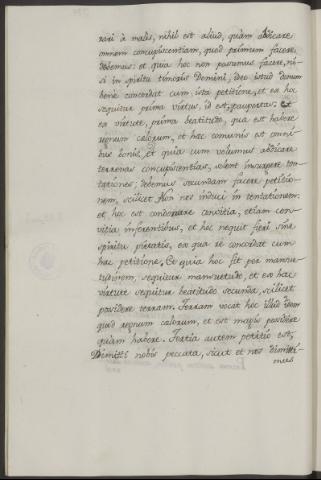 rari à malis, nihil est aliud, quam abdicare
omnem concupiscentiam, quod primum facere
debemus: et quia hoc non possumus facere, ni-
si in spiritu timoris Domini, ideo istud donum
bene concordat cum ista petitione, et ex hoc
sequitur prima virtus, id est, paupertas: Et
ex virtute, prima beatitudo, qua est habere
regnum cælorum, et hac comunis est omni-
bus bonis, et quia cum volumus abdicare
terrenas concupiscentias, solent insurgere ten-
tationes; debemus secundam facere petitio-
nem, scilicet Non nos inducas in tentationem:
et hoc est condonare convitia, etiam con-
vitia inferentibus, et hoc nequit fieri sine
spiritu pietatis, ex qua re concordat cum
hac petitione. Et quia hoc fit per mansu-
tudinem, sequitur mansuetudo, et ex hac
virtute sequitur beatitudo secunda, scilicet
possidere terram. Terram vocat hoc illud idem
quod regnum cælorum, et est magis possidere
quam habere. Tertia autem petitio est,
Dimitte nobis peccata, sicut et nos dimitti-
mus